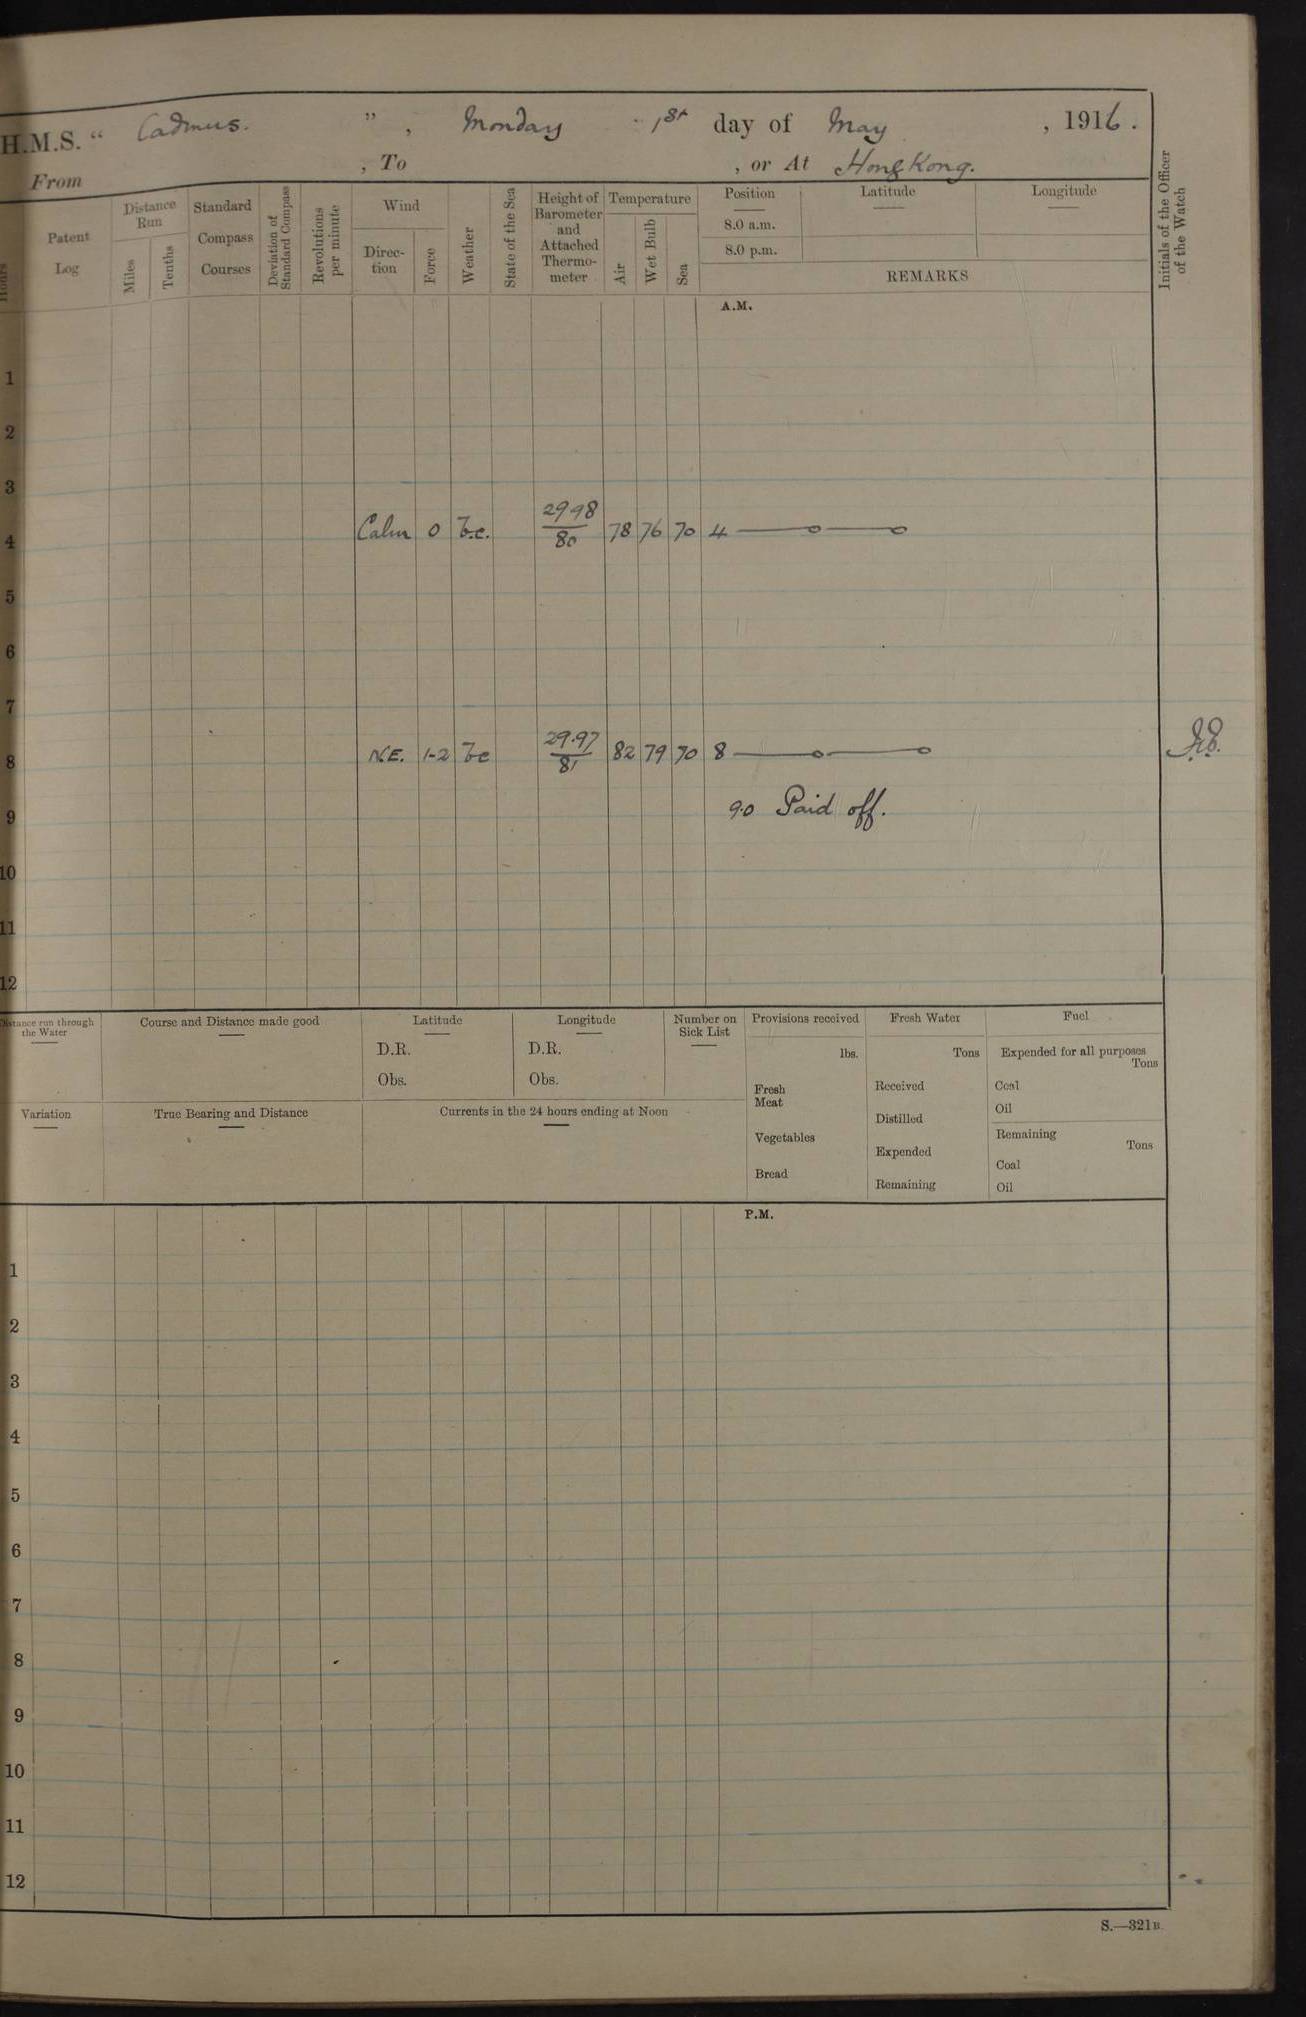 H.M.S. “ Cadmus. ” , Monday 1st day of May , 1916.
From , To , or At Hong Kong.
Hours
Patent Log
Distance Run
Miles
Tenths
Standard Compass Courses
Deviation of Standard Compass
Revolutions per minute
Wind
Direc-tion
Force
Weather
State of the Sea
Height of Barometer and Attached Thermo-meter
Temperature
Air
Wet Bulb
Sea
Position
8.0 a.m.
8.0 p.m.
Latitude
Longitude
REMARKS
Initials of the Officer of the Watch
A.M.
1
2
3
4 Calm 0 b.c. 29.98 80 78 76 70 4
5
6
7
8 N.E. 1-2 bc 29.97 81 82 79 70 8
9 9.0 Paid off.
10
11
12
Distance run through the Water
Course and Distance made good
Latitude
D.R.
Obs.
Longitude
D.R.
Obs.
Number on Sick List
Variation
True Bearing and Distance
Currents in the 24 hours ending at Noon
Provisions received
lbs.
Fresh Meat
Vegetables
Bread
Fresh Water
Tons
Received
Distilled
Expended
Remaining
Fuel
Expended for all purposes
Tons
Coal
Oil
Remaining
Tons
Coal
Oil
P.M.
1
2
3
4
5
6
7
8
9
10
11
12
S.—321B.